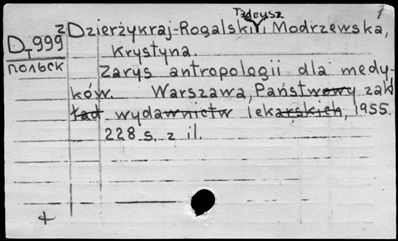 Tadeusz 7
z Dzierżykraj-Rogalski, Modrzewska,
D-999
Krystyna.
польск
Zarys antropologii dla medy-
ków. Warszawa, Państwowy zakł
ład wydawnictw lekarskich, 1955.
228 s. z il.
+